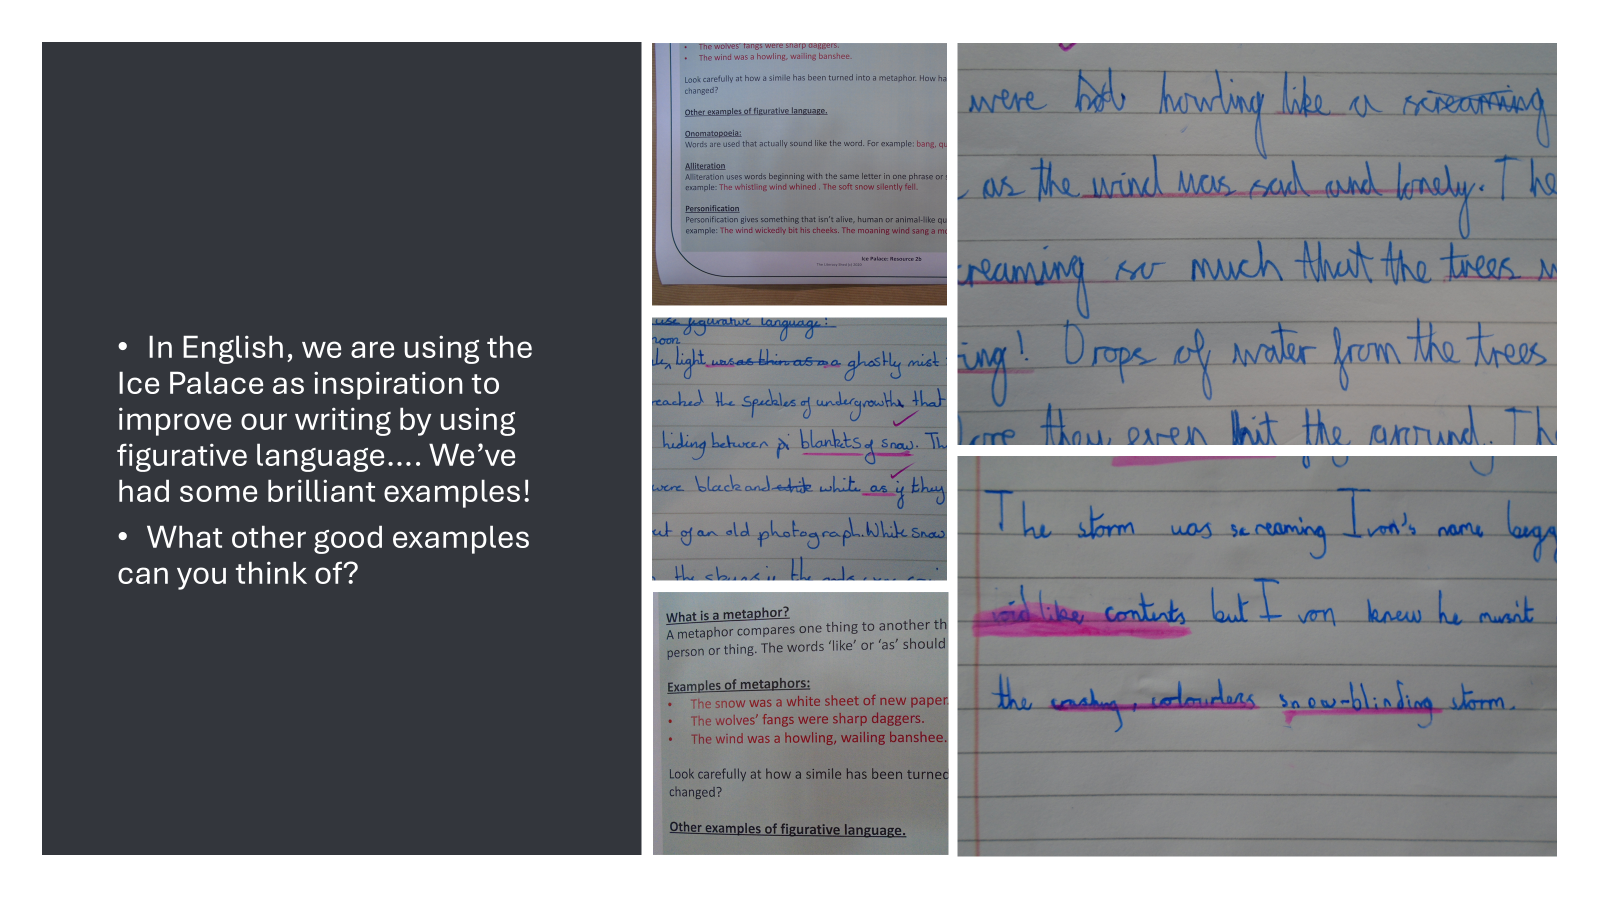 • In English, we are using the
Ice Palace as inspiration to
improve our writing by using
figurative language…. We’ve
had some brilliant examples!
• What other good examples
can you think of?
• The wolves’ fangs were sharp daggers.
• The wind was a howling, wailing banshee.
Look carefully at how a simile has been turned into a metaphor. How ha
changed?
Other examples of figurative language.
Onomatopoeia:
Words are used that actually sound like the word. For example: bang, qu
Alliteration
Alliteration uses words beginning with the same letter in one phrase or
example: The whistling wind whined . The soft snow silently fell.
Personification
Personification gives something that isn’t alive, human or animal-like qu
example: The wind wickedly bit his cheeks. The moaning wind sang a m
Ice Palace: Resource 2b
use figurative language!
oon
light was as thin as a ghostly mist
reached the speckles of undergrowth that
hiding between blankets of snow. Th
were black and white as if they
ut of an old photograph. White snow
What is a metaphor?
A metaphor compares one thing to another th
person or thing. The words ‘like’ or ‘as’ should
Examples of metaphors:
• The snow was a white sheet of new paper.
• The wolves’ fangs were sharp daggers.
• The wind was a howling, wailing banshee.
Look carefully at how a simile has been turned
changed?
Other examples of figurative language.
were howling like a screaming
as the wind was sad and lonely. The
creaming so much that the trees w
ing! Drops of water from the trees
they even hit the ground. Th
The storm was screaming Ivon's name begg
like contents but Ivon knew he musnt
the snow-blinding storm.